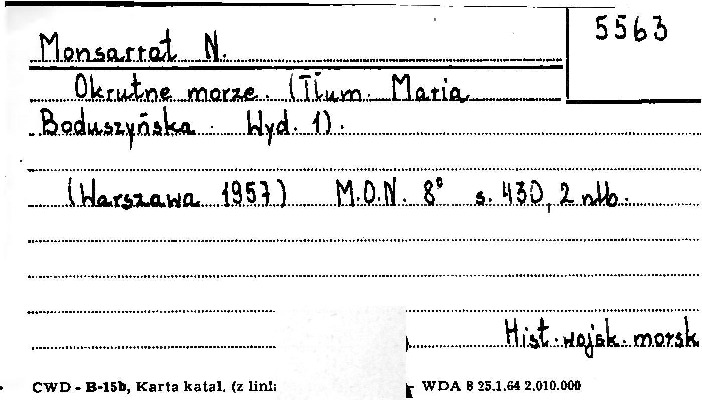 5563
Monsarrat N.
Okrutne morze. (Tłum. Maria
Boduszyńska. Wyd. 1).
(Warszawa 1957) M.O.N. 8° s. 430, 2 nlb.
Hist. wojsk. morsk
CWD - B-15b, Karta katal. (z lini: WDA 8 25.1.64 2.010.000